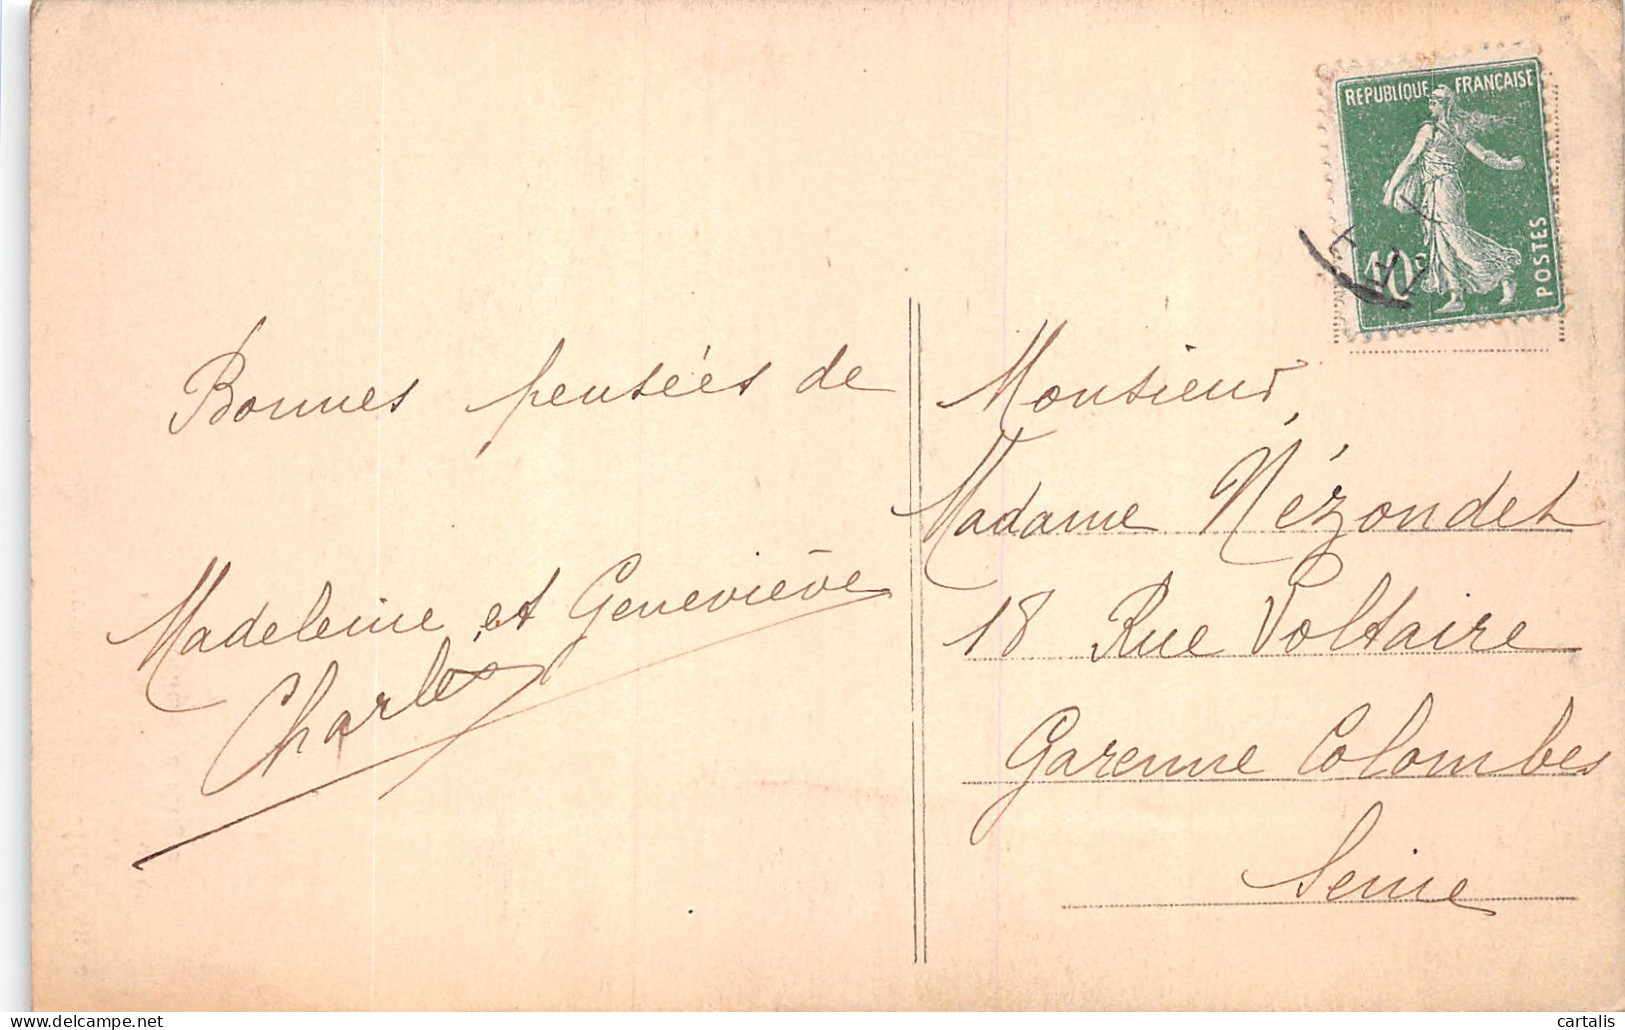 REPUBLIQUE FRANÇAISE
10c
POSTES
Bonnes pensées de
Madeleine et Geneviève
Charles
Monsieur,
Madame Nézondet
18 Rue Voltaire
Garenne Colombes
Seine
delcampe.net
cartalis